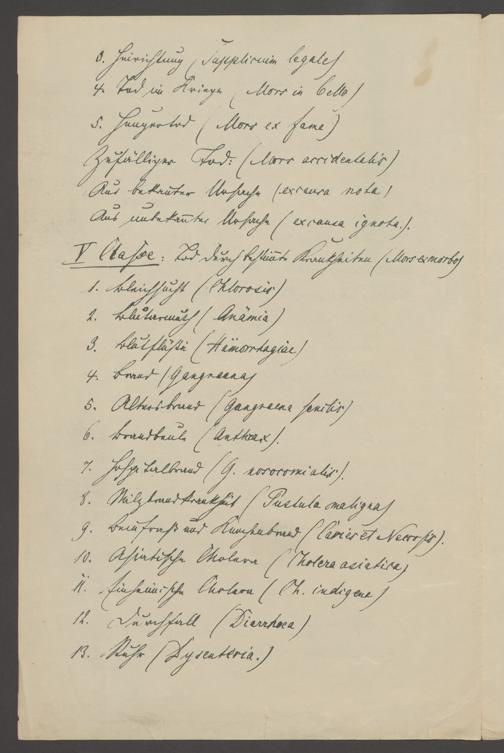 3. Hinrichtung (Supplicium legale)
4. Tod im Kriege (Mors in bello)
5. Hungertod (Mors ex fame)
Zufälliger Tod: (Mors accidentalis)
Aus bekannter Ursache (excausa nota)
Aus unbekannter Ursache (excausa ignota.).
V Classe: Tod durch bestimmte Krankheiten (Mors ex morbo)
1. Bleichsucht (Chlorosis)
2. Blutarmuth (Anämia)
3. Blutflüsse (Hämorrhagiae)
4. Brand (Gangraena)
5. Altersbrand (Gangraena senilis)
6. Brandbeule (Anthrax).
7. Hospitalbrand (G. nosocomialis).
8. Milzbrandkrankheit (Pustula maligna)
9. Beinfraß und Knochenbrand (Caries et Necrosis).
10. Asiatische Cholera (Cholera asiatica)
11. Einheimische Cholera (Ch. indigena)
12. Durchfall (Diarrhoea)
13. Ruhr (Dysenteria.)